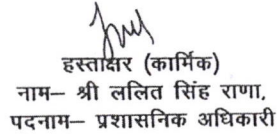 हस्ताक्षर (कार्मिक)
नाम– श्री ललित सिंह राणा,
पदनाम– प्रशासनिक अधिकारी